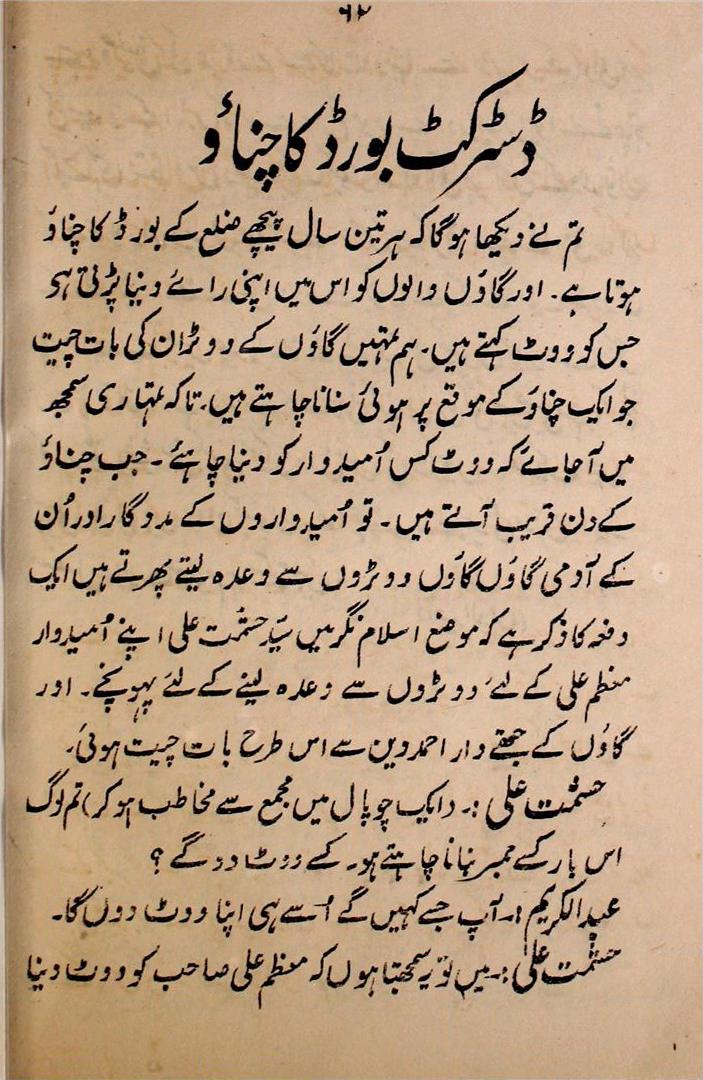 ۶۲
ڈسٹرکٹ بورڈ کا چناؤ
تم نے دیکھا ہوگا کہ ہر تین سال پیچھے ضلع کے بورڈ کا چناؤ
ہوتا ہے۔ اور گاؤں والوں کو اس میں اپنی رائے دینا پڑتی ہو
جس کو ووٹ کہتے ہیں۔ ہم تمہیں گاؤں کے ووٹران کی بات چیت
جو ایک چناؤ کے موقع پر ہوئی سنانا چاہتے ہیں۔ تاکہ تمہاری سمجھ
میں آجائے کہ ووٹ کس اُمیدوار کو دینا چاہئے۔ جب چناؤ
کے دن قریب آتے ہیں۔ تو اُمیدواروں کے مددگار اور اُن
کے آدمی گاؤں گاؤں ووٹروں سے وعدہ لیتے پھرتے ہیں ایک
دفعہ کا ذکر ہے کہ موضع اسلام نگر میں سیّد حشمت علی اپنے اُمیدوار
معظم علی کے لئے ووٹروں سے وعدہ لینے کے لئے پہونچے۔ اور
گاؤں کے جتھے دار احمد دین سے اس طرح بات چیت ہوئی۔
حشمت علی :۔ (ایک چوپال میں مجمع سے مخاطب ہو کر) تم لوگ
اس بار کسے ممبر بنانا چاہتے ہو۔ کسے ووٹ دوگے ؟
عبدالکریم :۔ آپ جسے کہیں گے اُسے ہی اپنا ووٹ دوں گا۔
حشمت علی :۔ میں تو یہ سمجھتا ہوں کہ معظم علی صاحب کو ووٹ دینا